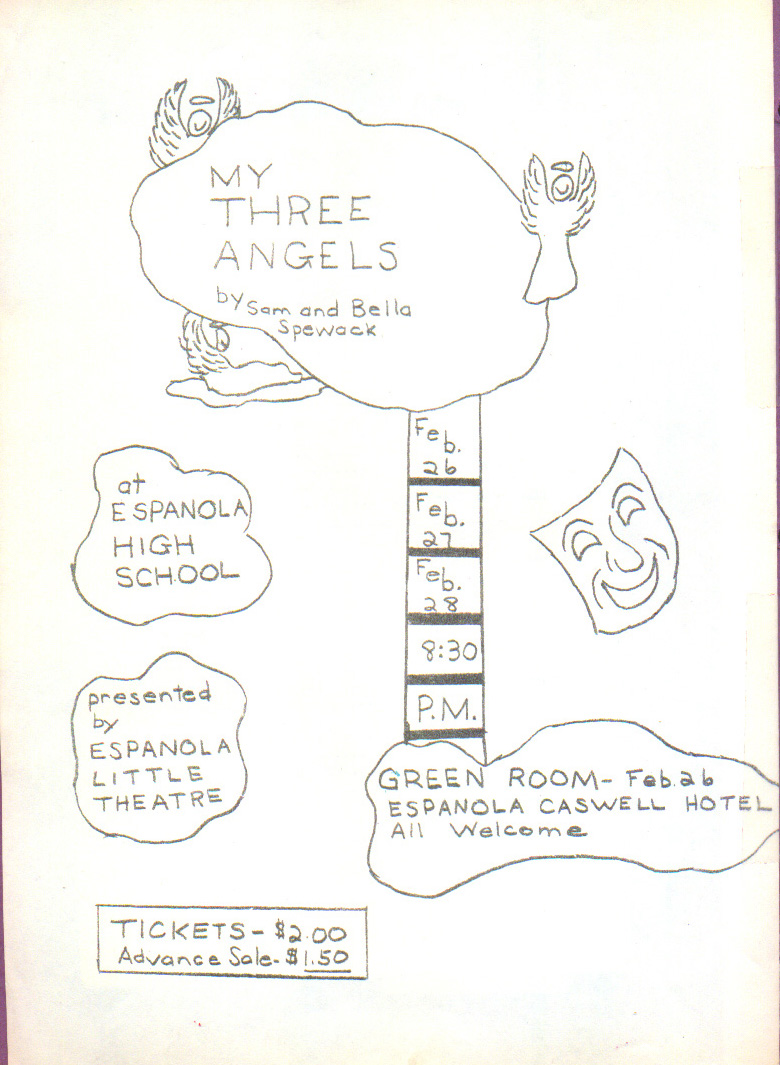 MY
THREE
ANGELS
by Sam and Bella
Spewack
Feb.
26
Feb.
27
Feb.
28
8:30
P.M.
at
ESPANOLA
HIGH
SCHOOL
presented
by
ESPANOLA
LITTLE
THEATRE
GREEN ROOM- Feb. 26
ESPANOLA CASWELL HOTEL
All Welcome
TICKETS- $2.00
Advance Sale- $1.50